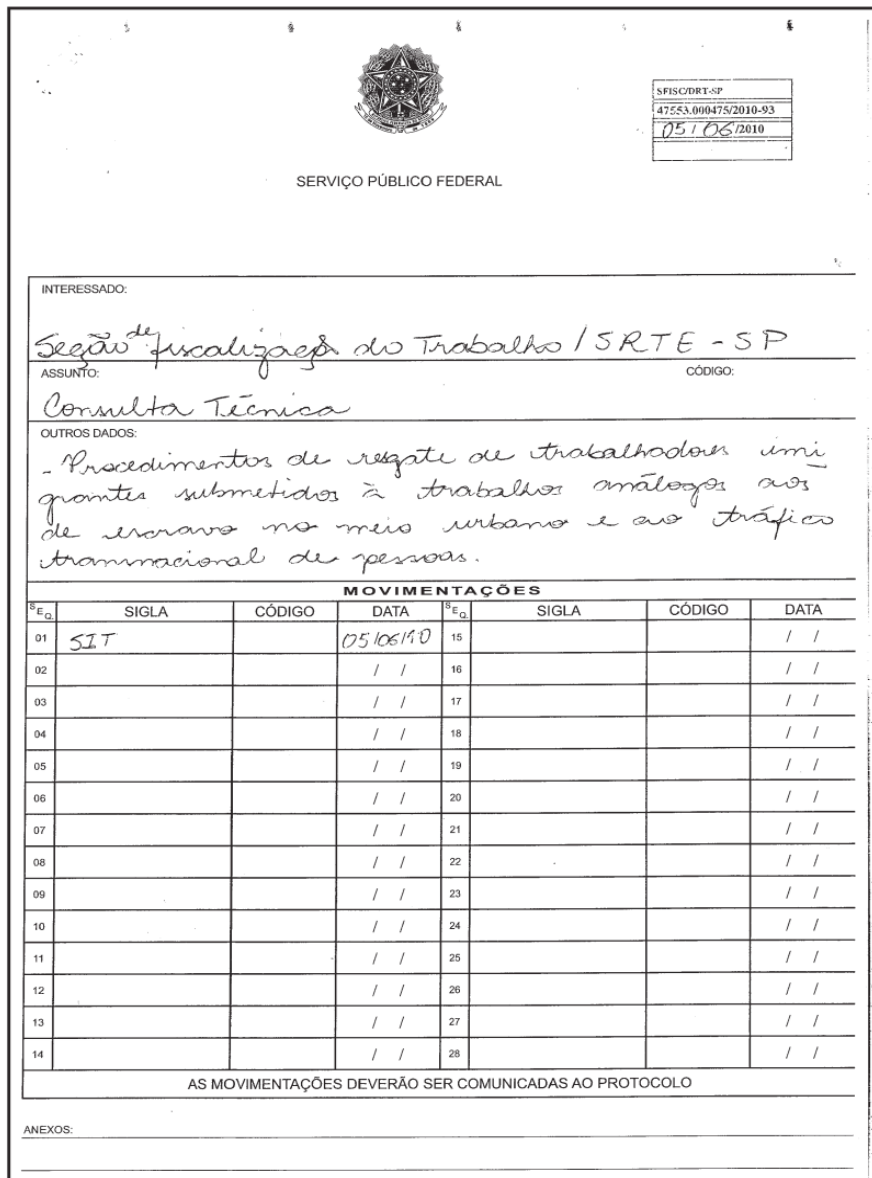 SFISC/DRT-SP
47553.000475/2010-93
05/06/2010
SERVIÇO PÚBLICO FEDERAL
INTERESSADO:
Seção de fiscalização do Trabalho / SRTE - SP
ASSUNTO:
CÓDIGO:
Consulta Técnica
OUTROS DADOS:
- Procedimentos de resgate de trabalhadores imi
grantes submetidos à trabalhos análogos aos
de escravo no meio urbano e ao tráfico
transnacional de pessoas.
MOVIMENTAÇÕES
SEQ. SIGLA CÓDIGO DATA SEQ. SIGLA CÓDIGO DATA
01 SIT 05/06/10 15 / /
02 / / 16 / /
03 / / 17 / /
04 / / 18 / /
05 / / 19 / /
06 / / 20 / /
07 / / 21 / /
08 / / 22 / /
09 / / 23 / /
10 / / 24 / /
11 / / 25 / /
12 / / 26 / /
13 / / 27 / /
14 / / 28 / /
AS MOVIMENTAÇÕES DEVERÃO SER COMUNICADAS AO PROTOCOLO
ANEXOS: